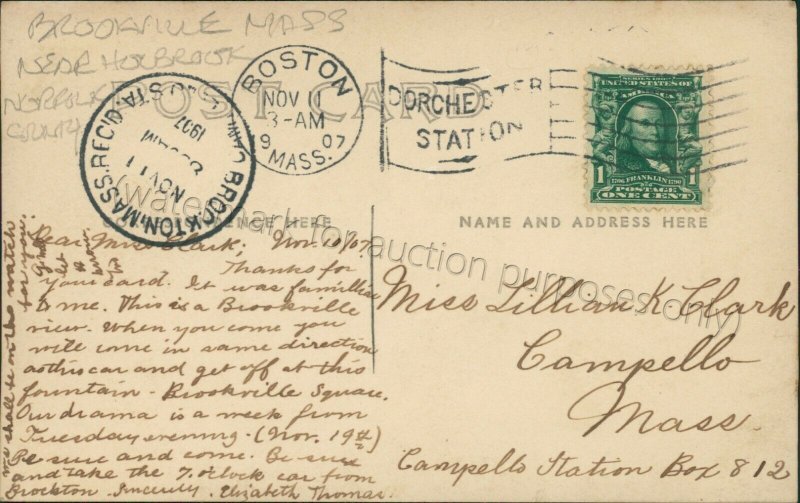 BROOKVILLE MASS
NEAR HOLBROOK
NORFOLK
COUNTY
POST CARD
BOSTON
NOV 11
3-AM
9 07
MASS.
DORCHESTER
STATION
BROCKTON, MASS. REC'D.
CAMPELLO STA.
NOV 11
1907
SERIES 1902
UNITED STATES OF
AMERICA
1 1
1706 FRANKLIN 1790
POSTAGE
ONE CENT
CORRESPONDENCE HERE
NAME AND ADDRESS HERE
(watermark for auction purposes only)
Dear Miss Clark; Nov. 10/07.
Thanks for
your card. It was familiar
to me. This is a Brookville
view. When you come you
will come in same direction
as this car and get off at this
fountain - Brookville Square.
Our drama is a week from
Tuesday evening - (Nov. 19th)
Be sure and come. Be sure
and take the 7.o'clock car from
Brockton. Sincerely. Elizabeth Thomas.
me shall be on the watch
for you.
Miss Lillian K. Clark
Campello
Mass.
Campello Station Box 812